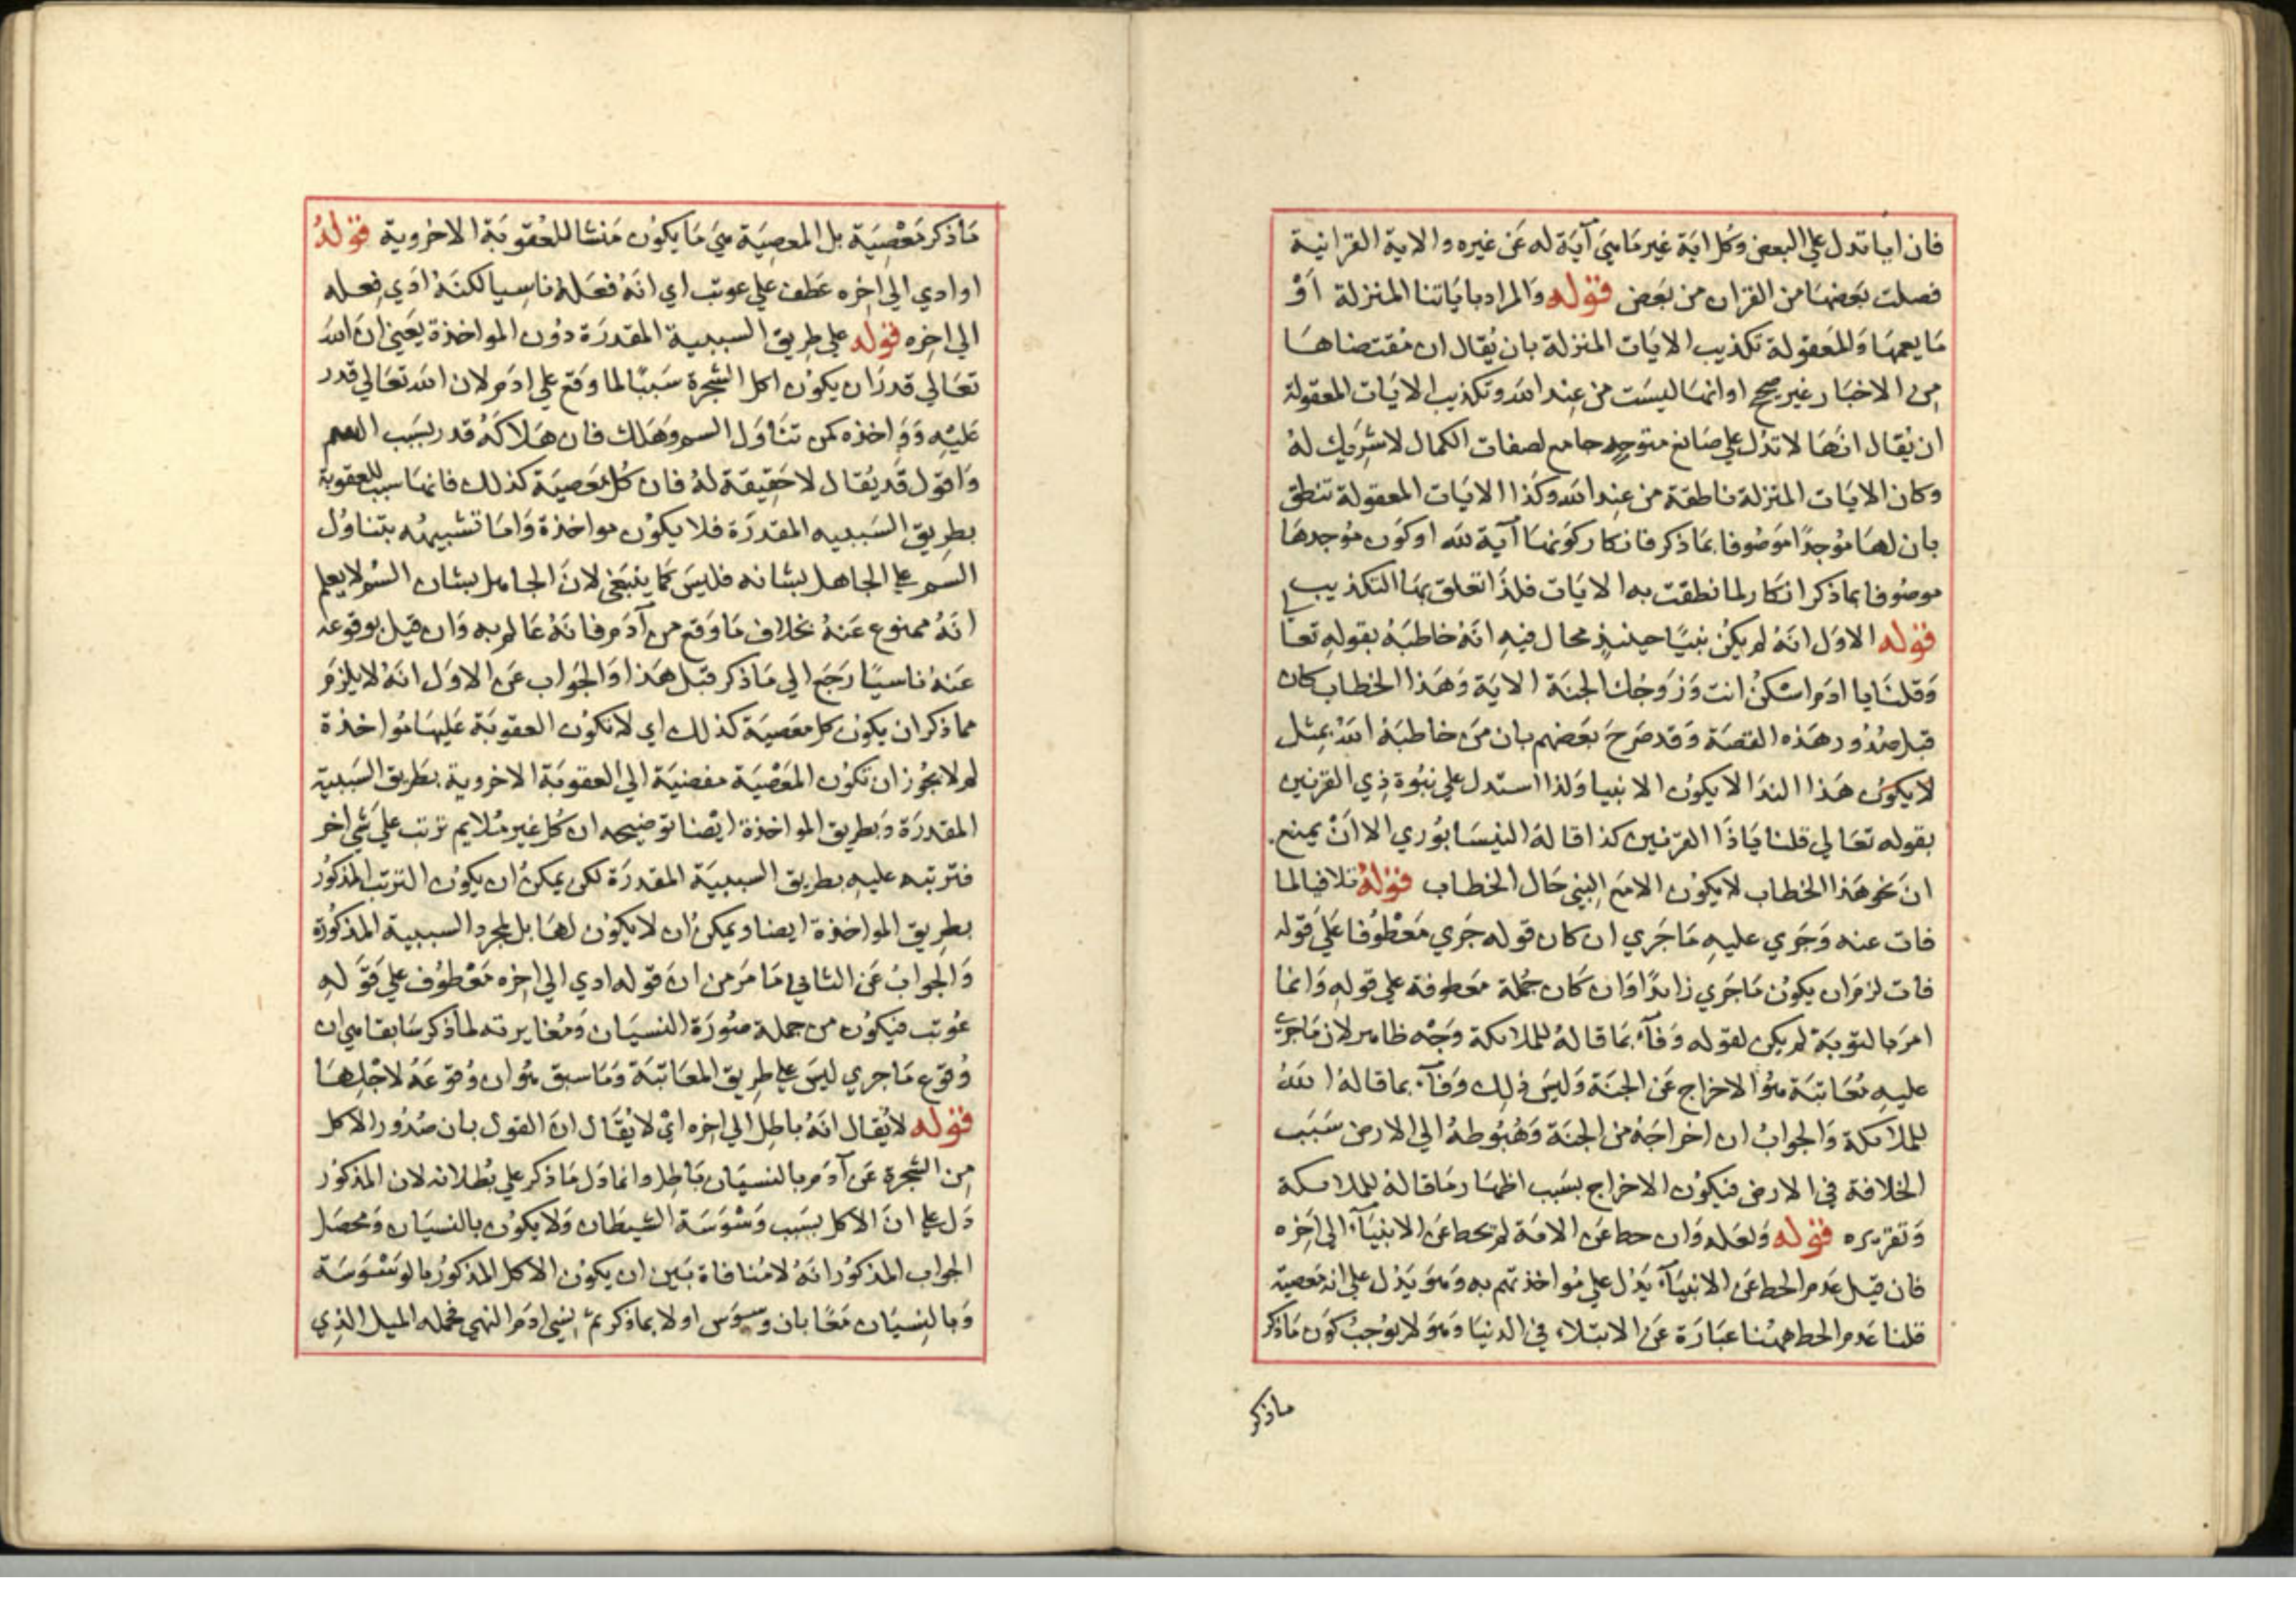 فان ايا تدل علي البعض وكل اية غير ما هي آية له عن غيره والاية القرانية
فصلت بعضها من القران من بعض قوله والمراد باياتنا المنزلة اَوْ
ما يعمها والمعقولة تكذيب الايات المنزلة بان يُقال ان مقتضاها
من الاخبار غير صحيح او انها ليست من عند الله وتكذيب الايات المعقولة
ان يُقال انها لا تدل علي صانع متوحد جامع لصفات الكمال لا شريك له
وكان الايات المنزلة ناطقة من عند الله وكذا الايات المعقولة تنطق
بان لها موجدًا موصوفا بما ذكر فانكار كونها آية لله او كون موجدها
موصوفا بما ذكر انكار لما نطقت به الايات فلذا تعلق بها التكذيب
قوله الاول انه لم يكن نبيًا حينئذٍ محال فيه انه خاطبه بقوله تعا لي
وقلنا يا ادم اسكن انت وزوجك الجنة الاية وهذا الخطاب كان
قبل صدور هذه القصة وقد صرح بعضهم بان من خاطبه الله بمثل
لا يكون هذا الندا لا يكون الا نبيا ولذا استدل علي نبوة ذي القرنين
بقوله تعالي قلنا يا ذا القرنين كذا قاله النيسابوري الا انْ يمنع.
ان نحو هذا الخطاب لا يكون الا مع النبي حال الخطاب قوله تلافيا لما
فات عنه وجري عليه ما جري ان كان قوله جري معطوفا علي قوله
فات لزم ان يكون ما جري زايدًا وان كان جملة معطوفة علي قوله وانما
امر بالتوبة لم يكن لقوله وفآء بما قاله للملائكة وجه ظاهر لان ما جري
عليه معاتبة هو الاخراج عن الجنة وليس ذلك وفآء بما قاله الله
للملائكة والجواب ان اخراجه من الجنة وهبوطه الي الارض سبب
الخلافة في الارض فيكون الاخراج بسبب اظهار ما قاله للملائكة
وتقريره قوله ولعله وان حط عن الامة لم يحط عن الانبيآء الي اخره
فان قيل عدم الحط عن الانبيآء يدل علي مواخذتهم به وهو يدل علي انه معصية
قلنا عدم الحط ههنا عبارة عن الابتلاء في الدنيا وهو لا يوجب كون ما ذكر
ماذكر
ما ذكر معصية بل المعصية هي ما يكون منشا للعقوبة الاخروية قوله
او ادي الي اخره عطف علي عوتب اي انه فعله ناسيا لكنه ادي فعله
الي اخره قوله علي طريق السببية المقدرة دون المواخذة يعني ان الله
تعالي قدر ان يكون اكل الشجرة سببًا لما وقع علي ادم لان الله تعالي قدر
عليه وواخذه كمن تناول السم وهلك فان هلاكه قدر بسبب السم
واقول قد يُقال لا حقيقة له فان كل معصية كذلك فانها سبب للعقوبة
بطريق السببيه المقدرة فلا يكون مواخذة واما تشبيهه بتناول
السم علي الجاهل بشانه فليس كما ينبغي لان الجاهل بشان السم لا يعلم
انه ممنوع عنه بخلاف ما وقع من آدم فانه عالم به وان قيل بوقوعه
عنه ناسيًا رجع الي ما ذكر قبل هذا والجواب عن الاول انه لا يلزم
مما ذكر ان يكون كل معصية كذلك اي لا تكون العقوبة عليها مواخذة
لم لا يجوز ان تكون المعصية مفضية الي العقوبة الاخروية بطريق السببية
المقدرة وبطريق المواخذة ايضا توضيحه ان كل غير ملايم ترتب علي شي اخر
فترتبه عليه بطريق السببية المقدرة لكن يمكن ان يكون الترتب المذكور
بطريق المواخذة ايضا ويمكن ان لا يكون لها بل لمجرد السببية المذكورة
والجواب عن الثاني ما مر من ان قوله ادي الي اخره معطوف علي قوله
عوتب فيكون من جملة صورة النسيان ومغايرته لما ذكر سابقا هي ان
وقوع ما جري ليس علي طريق المعاتبة وما سبق هو ان وقوعه لاجلها
قوله لا يُقال انه باطل الي اخره اي لا يقال ان القول بان صدور الاكل
من الشجرة عن آدم بالنسيان باطل وانما دل ما ذكر علي بطلانه لان المذكور
دل علي ان الاكل بسبب وسوسة الشيطان ولا يكون بالنسيان ومحصل
الجواب المذكور انه لا منافاة بين ان يكون الاكل المذكور بالوسوسة
وبالنسيان معًا بان وسوس اولا بما ذكر ثم نسي ادم النهي فحمله الميل الذي